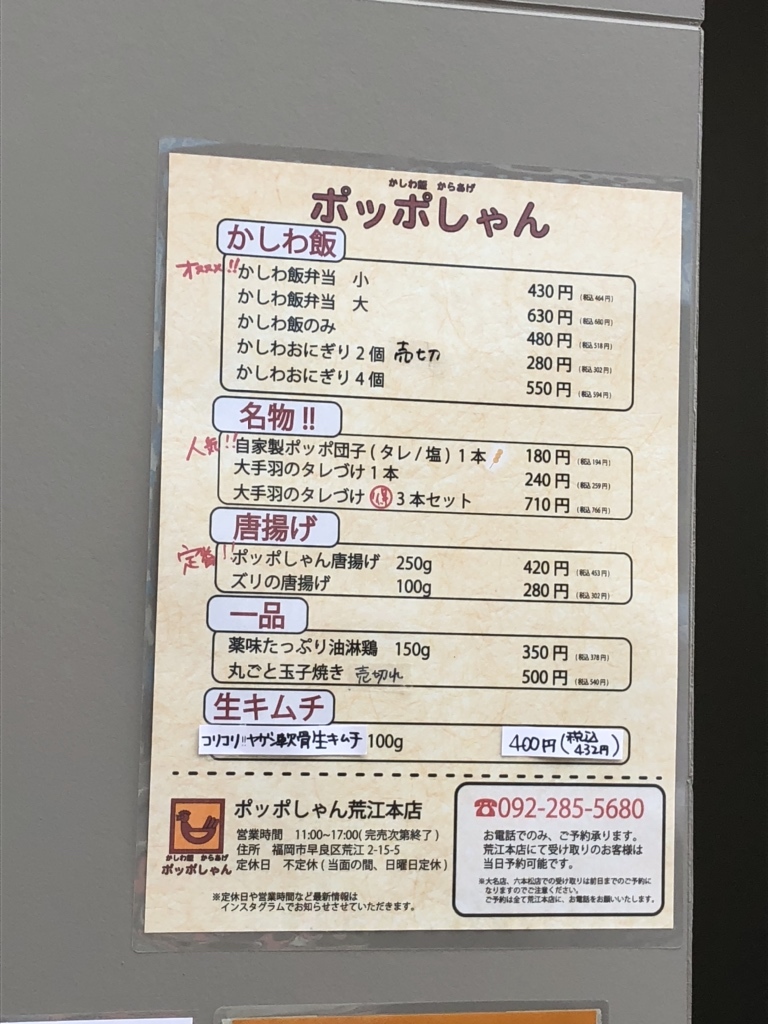 かしわ飯 からあげ
ポッポしゃん
かしわ飯
オススメ!!
かしわ飯弁当 小 430円 (税込464円)
かしわ飯弁当 大 630円 (税込680円)
かしわ飯のみ 480円 (税込518円)
かしわおにぎり2個 売切 280円 (税込302円)
かしわおにぎり4個 550円 (税込594円)
名物!!
人気!!
自家製ポッポ団子(タレ/塩)1本 180円 (税込194円)
大手羽のタレづけ1本 240円 (税込259円)
大手羽のタレづけ 得 3本セット 710円 (税込766円)
唐揚げ
定番!!
ポッポしゃん唐揚げ 250g 420円 (税込453円)
ズリの唐揚げ 100g 280円 (税込302円)
一品
薬味たっぷり油淋鶏 150g 350円 (税込378円)
丸ごと玉子焼き 売切れ 500円 (税込540円)
生キムチ
コリコリ!!ヤゲン軟骨生キムチ 100g 400円(税込432円)
ポッポしゃん荒江本店
営業時間 11:00~17:00(完売次第終了)
住所 福岡市早良区荒江2-15-5
定休日 不定休(当面の間、日曜日定休)
かしわ飯 からあげ
ポッポしゃん
※定休日や営業時間など最新情報は
インスタグラムでお知らせさせていただきます。
☎092-285-5680
お電話でのみ、ご予約承ります。
荒江本店にて受け取りのお客様は
当日予約可能です。
※大名店、六本松店での受け取りは前日までのご予約に
なりますのでご注意ください。
ご予約は全て荒江本店に、お電話をお願いいたします。